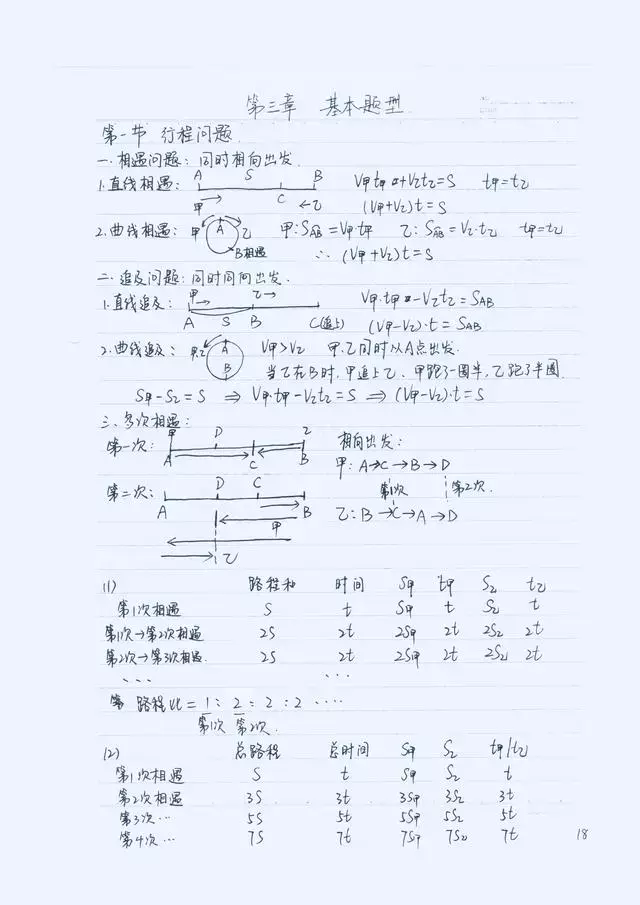 第三章 基本题型
第一节 行程问题
一.相遇问题:同时相向出发.
1.直线相遇: A S B V甲t甲+V乙t乙=S t甲=t乙
甲 C 乙 (V甲+V乙)t=S
2.曲线相遇: 甲 A 乙 甲:SAB=V甲t甲 乙:SAB=V乙·t乙 t甲=t乙
B相遇 ∴ (V甲+V乙)t=S
二.追及问题:同时同向出发.
1.直线追及: 甲→ 乙→ V甲·t甲-V乙t乙=SAB
A S B C(追上) (V甲-V乙)·t=SAB
2.曲线追及: 甲.乙 A B V甲>V乙 甲.乙同时从A点出发.
当乙在B时,甲追上乙.甲跑了一圈半,乙跑了半圆.
S甲-S乙=S ⇒ V甲·t甲-V乙t乙=S ⇒ (V甲-V乙)·t=S
三.多次相遇:
甲 D 乙 相向出发:
第一次: A C B 甲:A→C→B→D
第1次 第2次.
第二次: D C 乙:B→C→A→D
A B
甲
乙
(1) 路程和 时间 S甲 t甲 S乙 t乙
第1次相遇 S t S甲 t S乙 t
第1次→第2次相遇 2S 2t 2S甲 2t 2S乙 2t
第2次→第3次相遇. 2S 2t 2S甲 2t 2S乙 2t
··· ···
路程比=1:2:2:2····
第1次 第2次.
(2) 总路程 总时间 S甲 S乙 t甲/t乙
第1次相遇 S t S甲 S乙 t
第2次相遇 3S 3t 3S甲 3S乙 3t
第3次··· 5S 5t 5S甲 5S乙 5t
第4次··· 7S 7t 7S甲 7S乙 7t
18